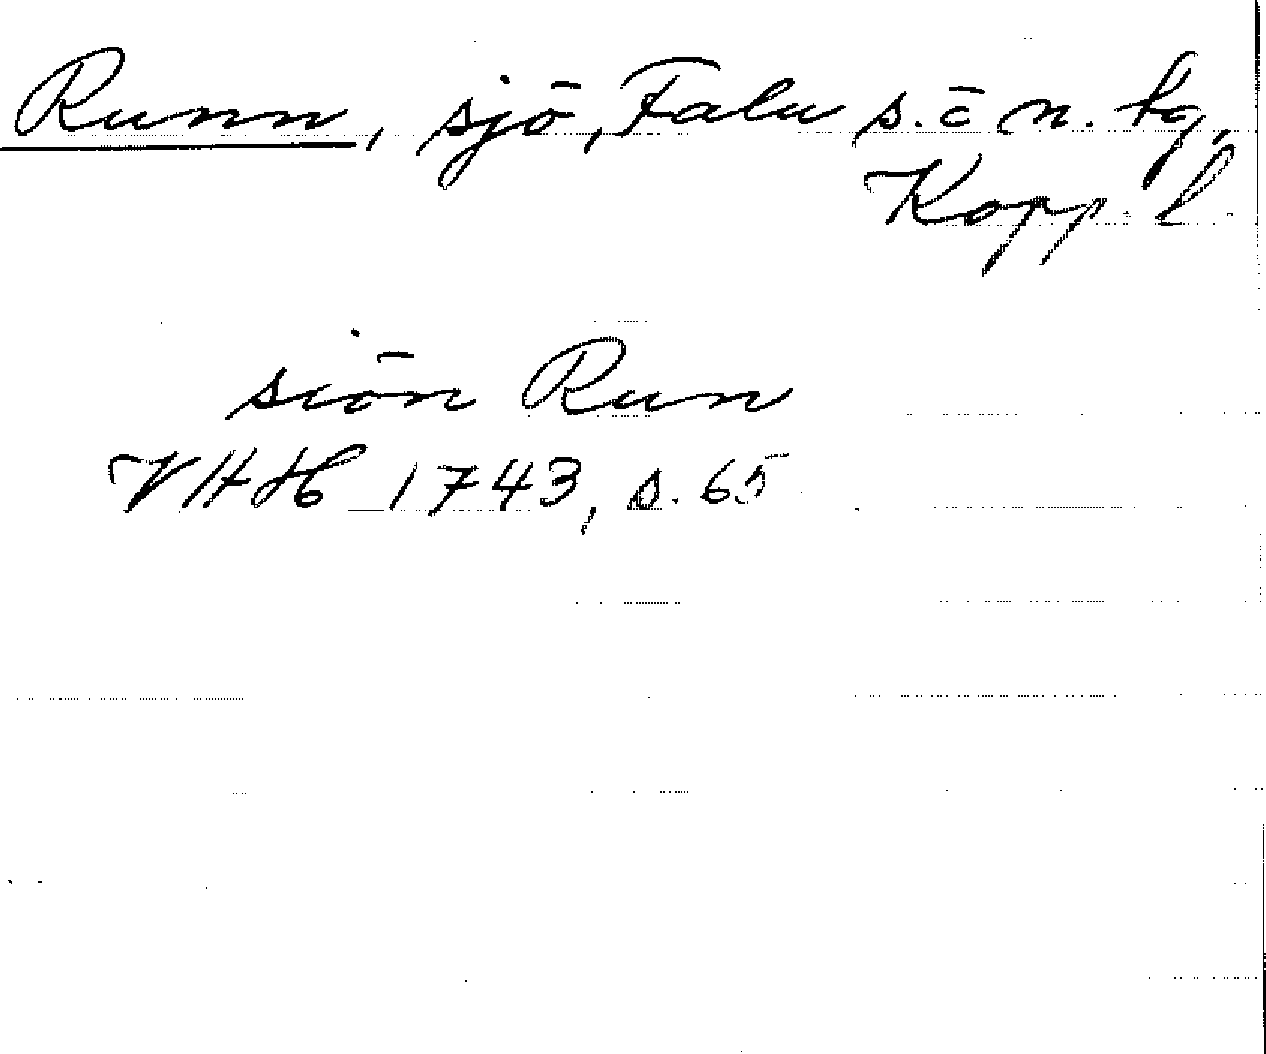 Runn, sjö, Falu s. o n. tg,
Kopp. l.
siön Run
VHH 1743, s. 65